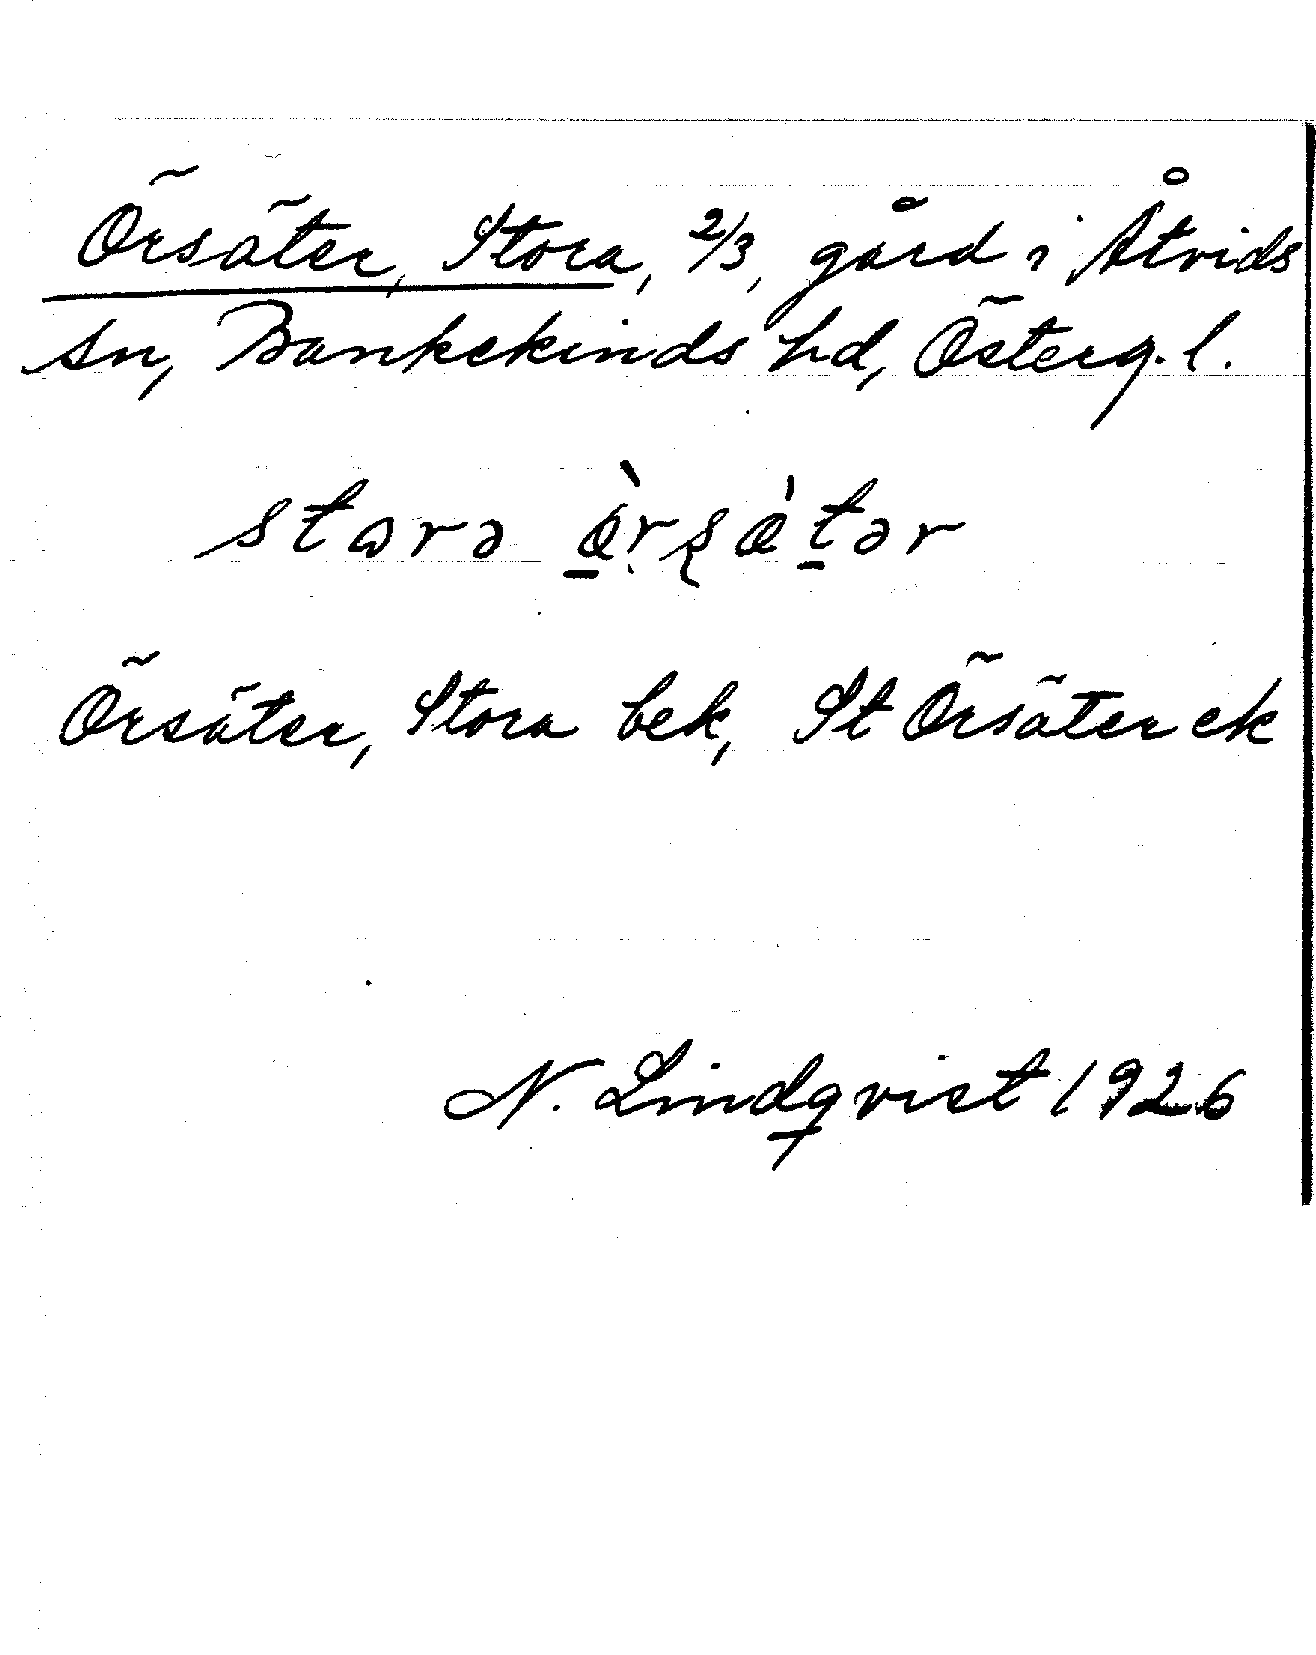 Örsäter, Stora, 2/3, gård i Åtvids
sn, Bankekinds hd, Österg. l.
stɷrə ö̀rsä̀tər
Örsäter, Stora bek, St Örsäter ek
N. Lindqvist 1926